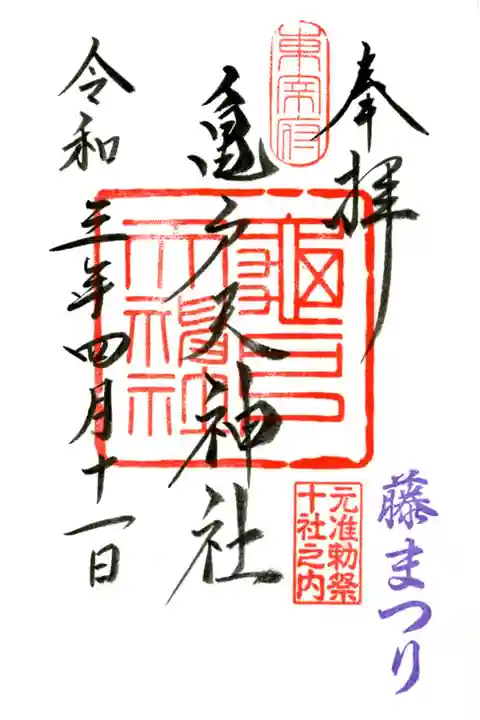 奉拝
東宰府
亀戸天神社
令和三年四月十一日
元准勅祭
十社之内
藤まつり